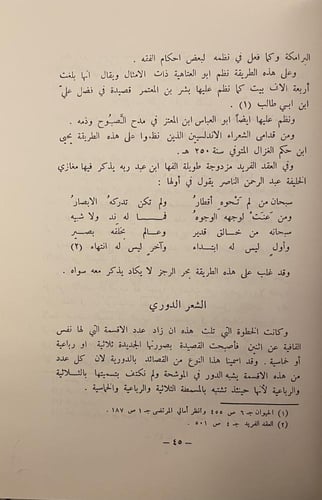 البرامكة وكما فعل في نظمه لبعض احكام الفقه .
وعلى هذه الطريقة نظم ابو العتاهية ذات الامثال ويقال انها بلغت
أربعة آلاف بيت كما نظم عليها بشر بن المعتمر قصيدة في فضل علي
ابن ابي طالب (١) .
ونظم عليها ايضاً ابو العباس ابن المعتز في مدح الصبوح وذمه .
ومن قدامى الشعراء الاندلسيين الذين نظموا على هذه الطريقة يحيى
ابن حكم الغزال المتوفي سنة ٢٥٠ هـ .
وفي العقد الفريد مزدوجة طويلة الفها ابن عبد ربه يذكر فيها مغازي
الخليفة عبد الرحمن الناصر يقول في أولها :
سبحان من لم تحوه أقطار ولم تكن تدركه الابصار
ومن عنت لوجهه الوجوه فما له ند ولا شبيه
سبحانه من خالق قدير وعالم بخلقه بصير
وأول ليس له ابتداء وآخر ليس له انتهاء (٢)
وقد غلب على هذه الطريقة بحر الرجز لا يكاد يذكر معه سواه .
الشعر الدوري
وكانت الخطوة التي تلت هذه ان زاد عدد الاقسمة التي لها نفس
القافية عن اثنين فأصبحت القصيدة بصورتها الجديدة ثلاثية او رباعية
أو خماسية . وقد اسمينا هذا النوع من القصائد بالدورية لان كل عدد
من هذه الاقسمة يشبه الدور في الموشحة ولم نكتف بتسميتها بالثلاثية
والرباعية لأنها حينئذ تشتبه بالمسمطة الثلاثية والرباعية والخماسية .
(١) الحيوان جـ ٦ ص ٤٥٥ وانظر أمالي المرتضى جـ ١ ص ١٨٧ .
(٢) العقد الفريد جـ ٤ ص ٥٠١ .
— ٤٥ —